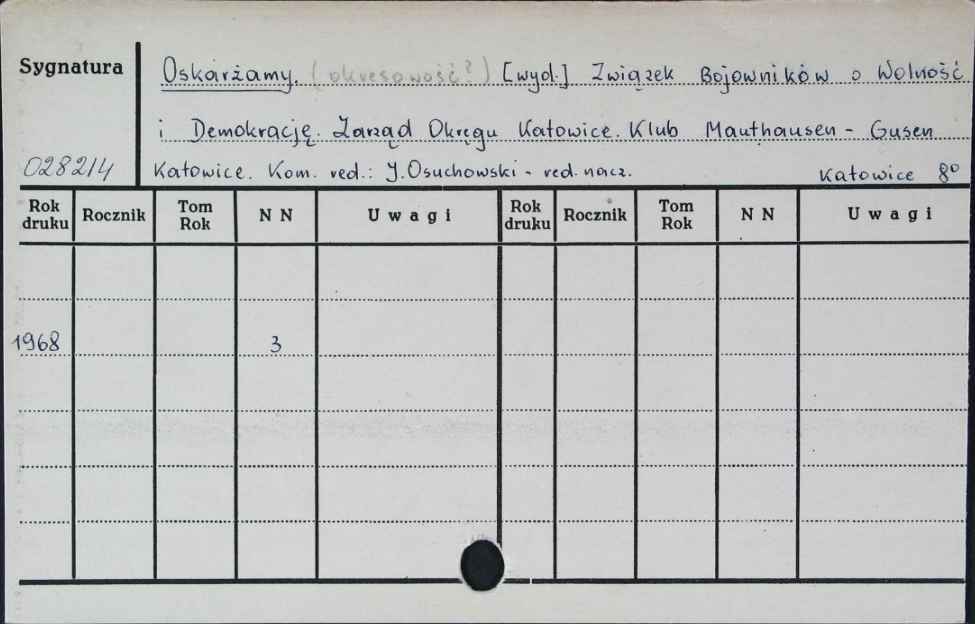 Sygnatura
Oskarżamy. (okresowość?) [wyd.] Związek Bojowników o Wolność
i Demokrację. Zarząd Okręgu Katowice. Klub Mauthausen - Gusen
028214
Katowice. Kom. red.: J. Osuchowski - red. nacz. Katowice 8º
Rok druku Rocznik Tom Rok N N Uwagi Rok druku Rocznik Tom Rok N N Uwagi
1968 3